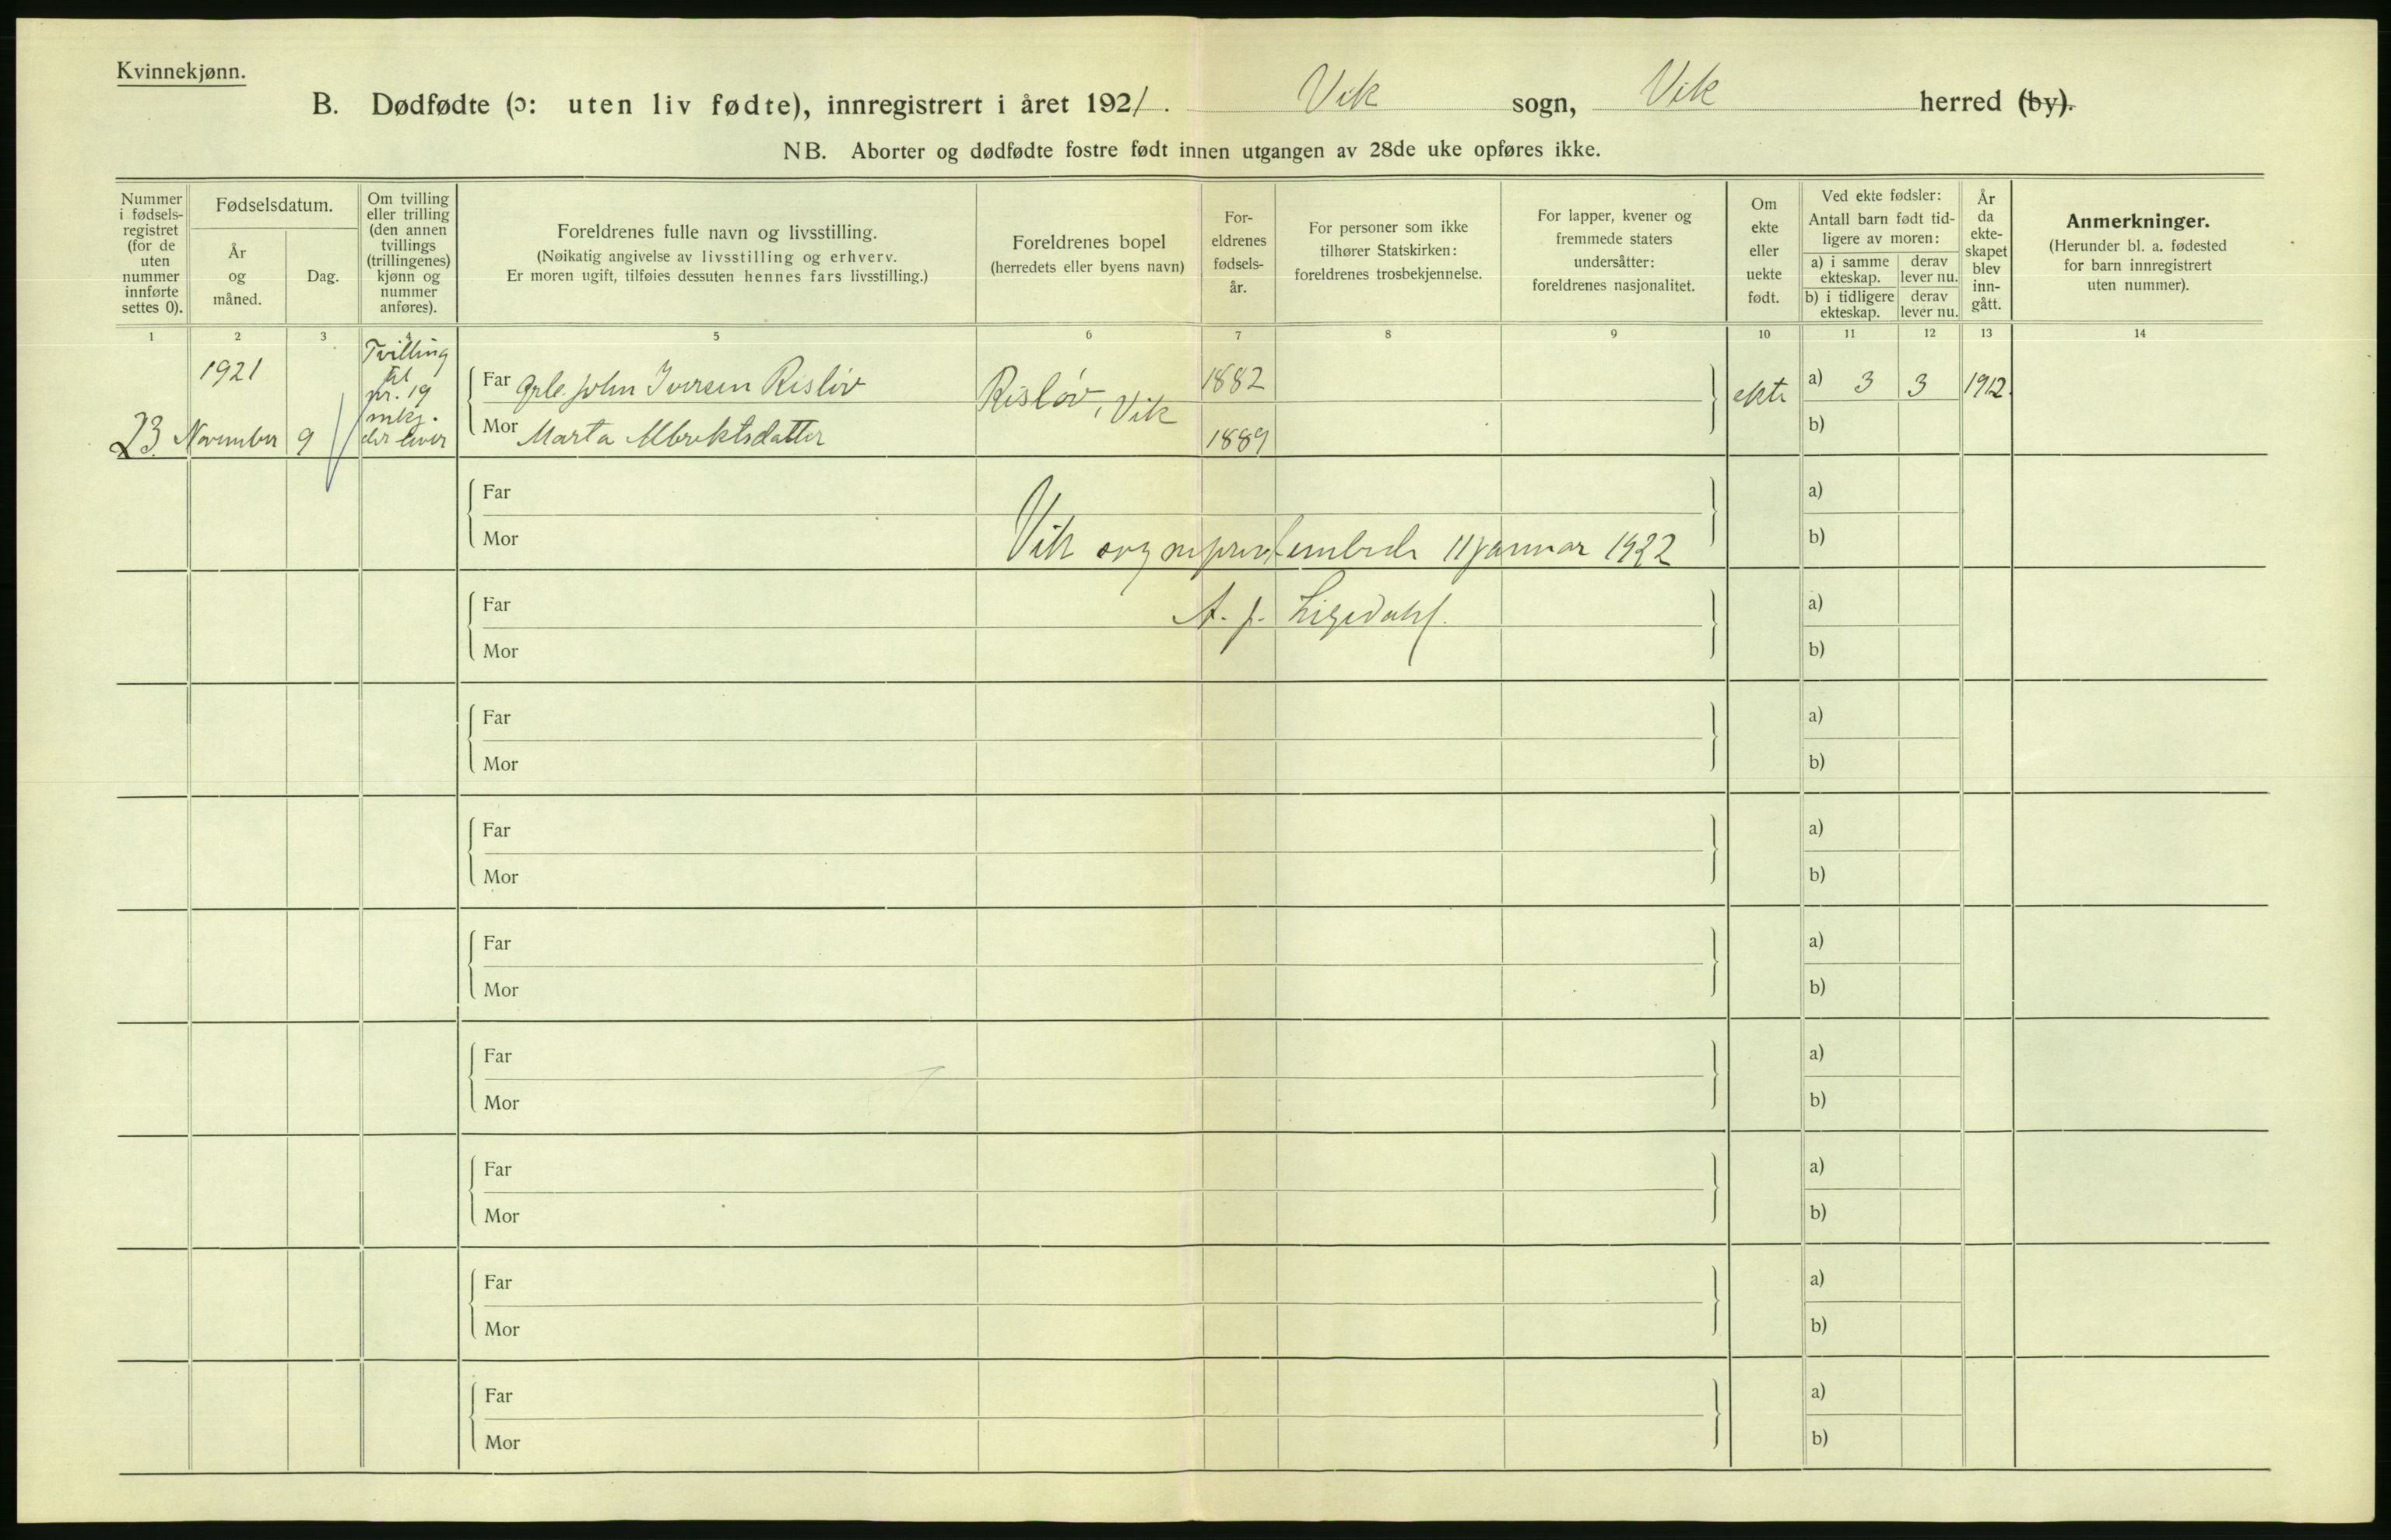 Kvinnekjønn.
B. Dødfødte (ɔ: uten liv fødte), innregistrert i året 1921. Vik sogn, Vik herred (by).
NB. Aborter og dødfødte fostre født innen utgangen av 28de uke opføres ikke.
Nummer
i fødsels-
registret
(for de
uten
nummer
innførte
settes 0).
Fødselsdatum.
År
og
måned.
Dag.
Om tvilling
eller trilling
(den annen
tvillings
(trillingenes)
kjønn og
nummer
anføres).
Foreldrenes fulle navn og livsstilling.
(Nøikatig angivelse av livsstilling og erhverv.
Er moren ugift, tilføies dessuten hennes fars livsstilling.)
Foreldrenes bopel
(herredets eller byens navn)
For-
eldrenes
fødsels-
år.
For personer som ikke
tilhører Statskirken:
foreldrenes trosbekjennelse.
For lapper, kvener og
fremmede staters
undersåtter:
foreldrenes nasjonalitet.
Om
ekte
eller
uekte
født.
Ved ekte fødsler:
Antall barn født tid-
ligere av moren:
a) i samme
ekteskap.
derav
lever nu.
b) i tidligere
ekteskap.
derav
lever nu.
År
da
ekte-
skapet
blev
inn-
gått.
Anmerkninger.
(Herunder bl. a. fødested
for barn innregistrert
uten nummer).
1 2 3 4 5 6 7 8 9 10 11 12 13 14
1921
23 November 9
Tvilling
til
nr. 19
mkj.
der lever
Far John Iversen Risløv
Mor Marta Albrektsdatter
Risløv, Vik
1882
1889
ekte
a) 3 3 1912.
b)
Far a)
Mor b)
Vik 11 januar 1922
Far a)
A. J.
Mor b)
Far a)
Mor b)
Far a)
Mor b)
Far a)
Mor b)
Far a)
Mor b)
Far a)
Mor b)
Far a)
Mor b)
Far a)
Mor b)